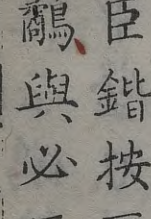 臣鍇按
與必